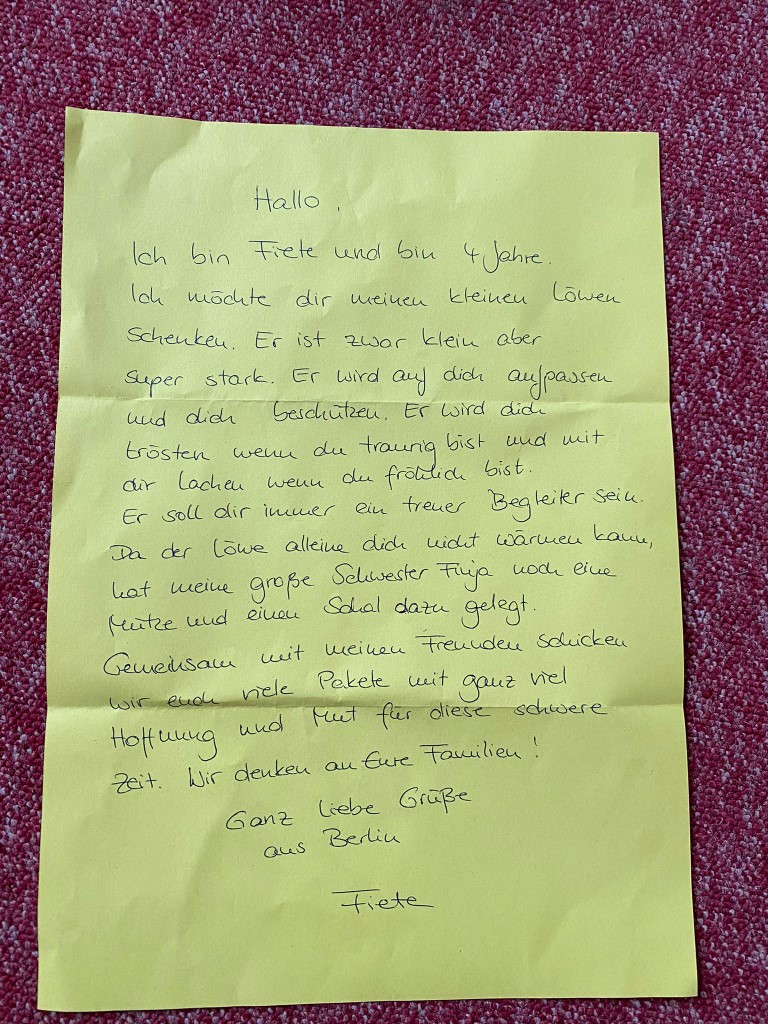 Hallo,
Ich bin Fiete und bin 4 Jahre.
Ich möchte dir meinen kleinen Löwen
schenken. Er ist zwar klein aber
super stark. Er wird auf dich aufpassen
und dich beschützen. Er wird dich
trösten wenn du traurig bist und mit
dir lachen wenn du fröhlich bist.
Er soll dir immer ein treuer Begleiter sein.
Da der Löwe alleine dich nicht wärmen kann,
hat meine große Schwester Finja noch eine
Mütze und einen Schal dazu gelegt.
Gemeinsam mit meinen Freunden schicken
wir euch viele Pakete mit ganz viel
Hoffnung und Mut für diese schwere
Zeit. Wir denken an Eure Familien!
Ganz liebe Grüße
aus Berlin
Fiete